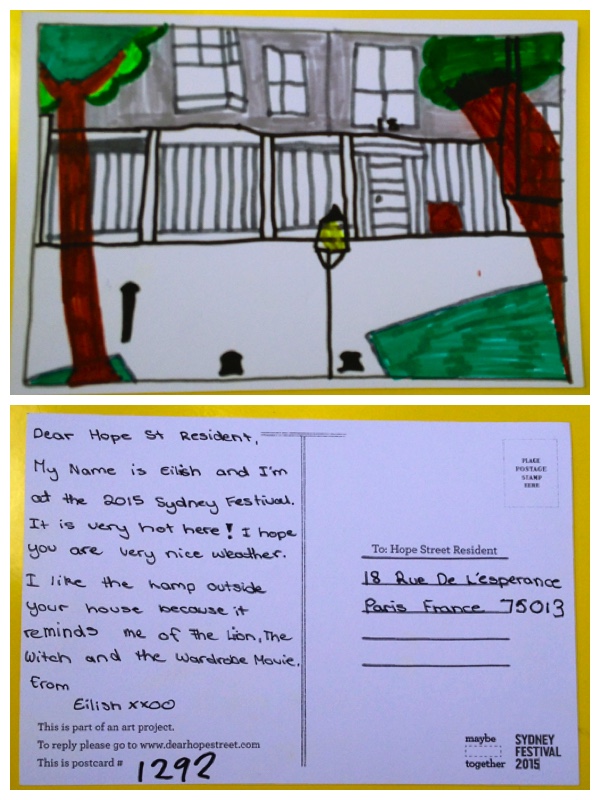 18
Dear Hope St Resident,
My Name is Eilish and I'm
at the 2015 Sydney Festival.
It is very hot here! I hope
you are very nice weather.
I like the hamp outside
your house because it
reminds me of The Lion, The
Witch and the Wardrobe Movie.
From
Eilish xxOO
This is part of an art project.
To reply please go to www.dearhopestreet.com
This is postcard # 1292
PLACE
POSTAGE
STAMP
HERE
To: Hope Street Resident
18 Rue De L'esperance
Paris France 75013
maybe
together
SYDNEY
FESTIVAL
2015